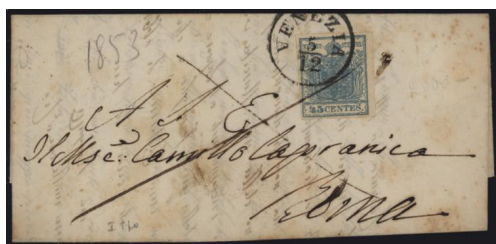 1853
VENEZIA
5/12
45 CENTES.
A S E
Il Msē: Camillo Capranica
Roma